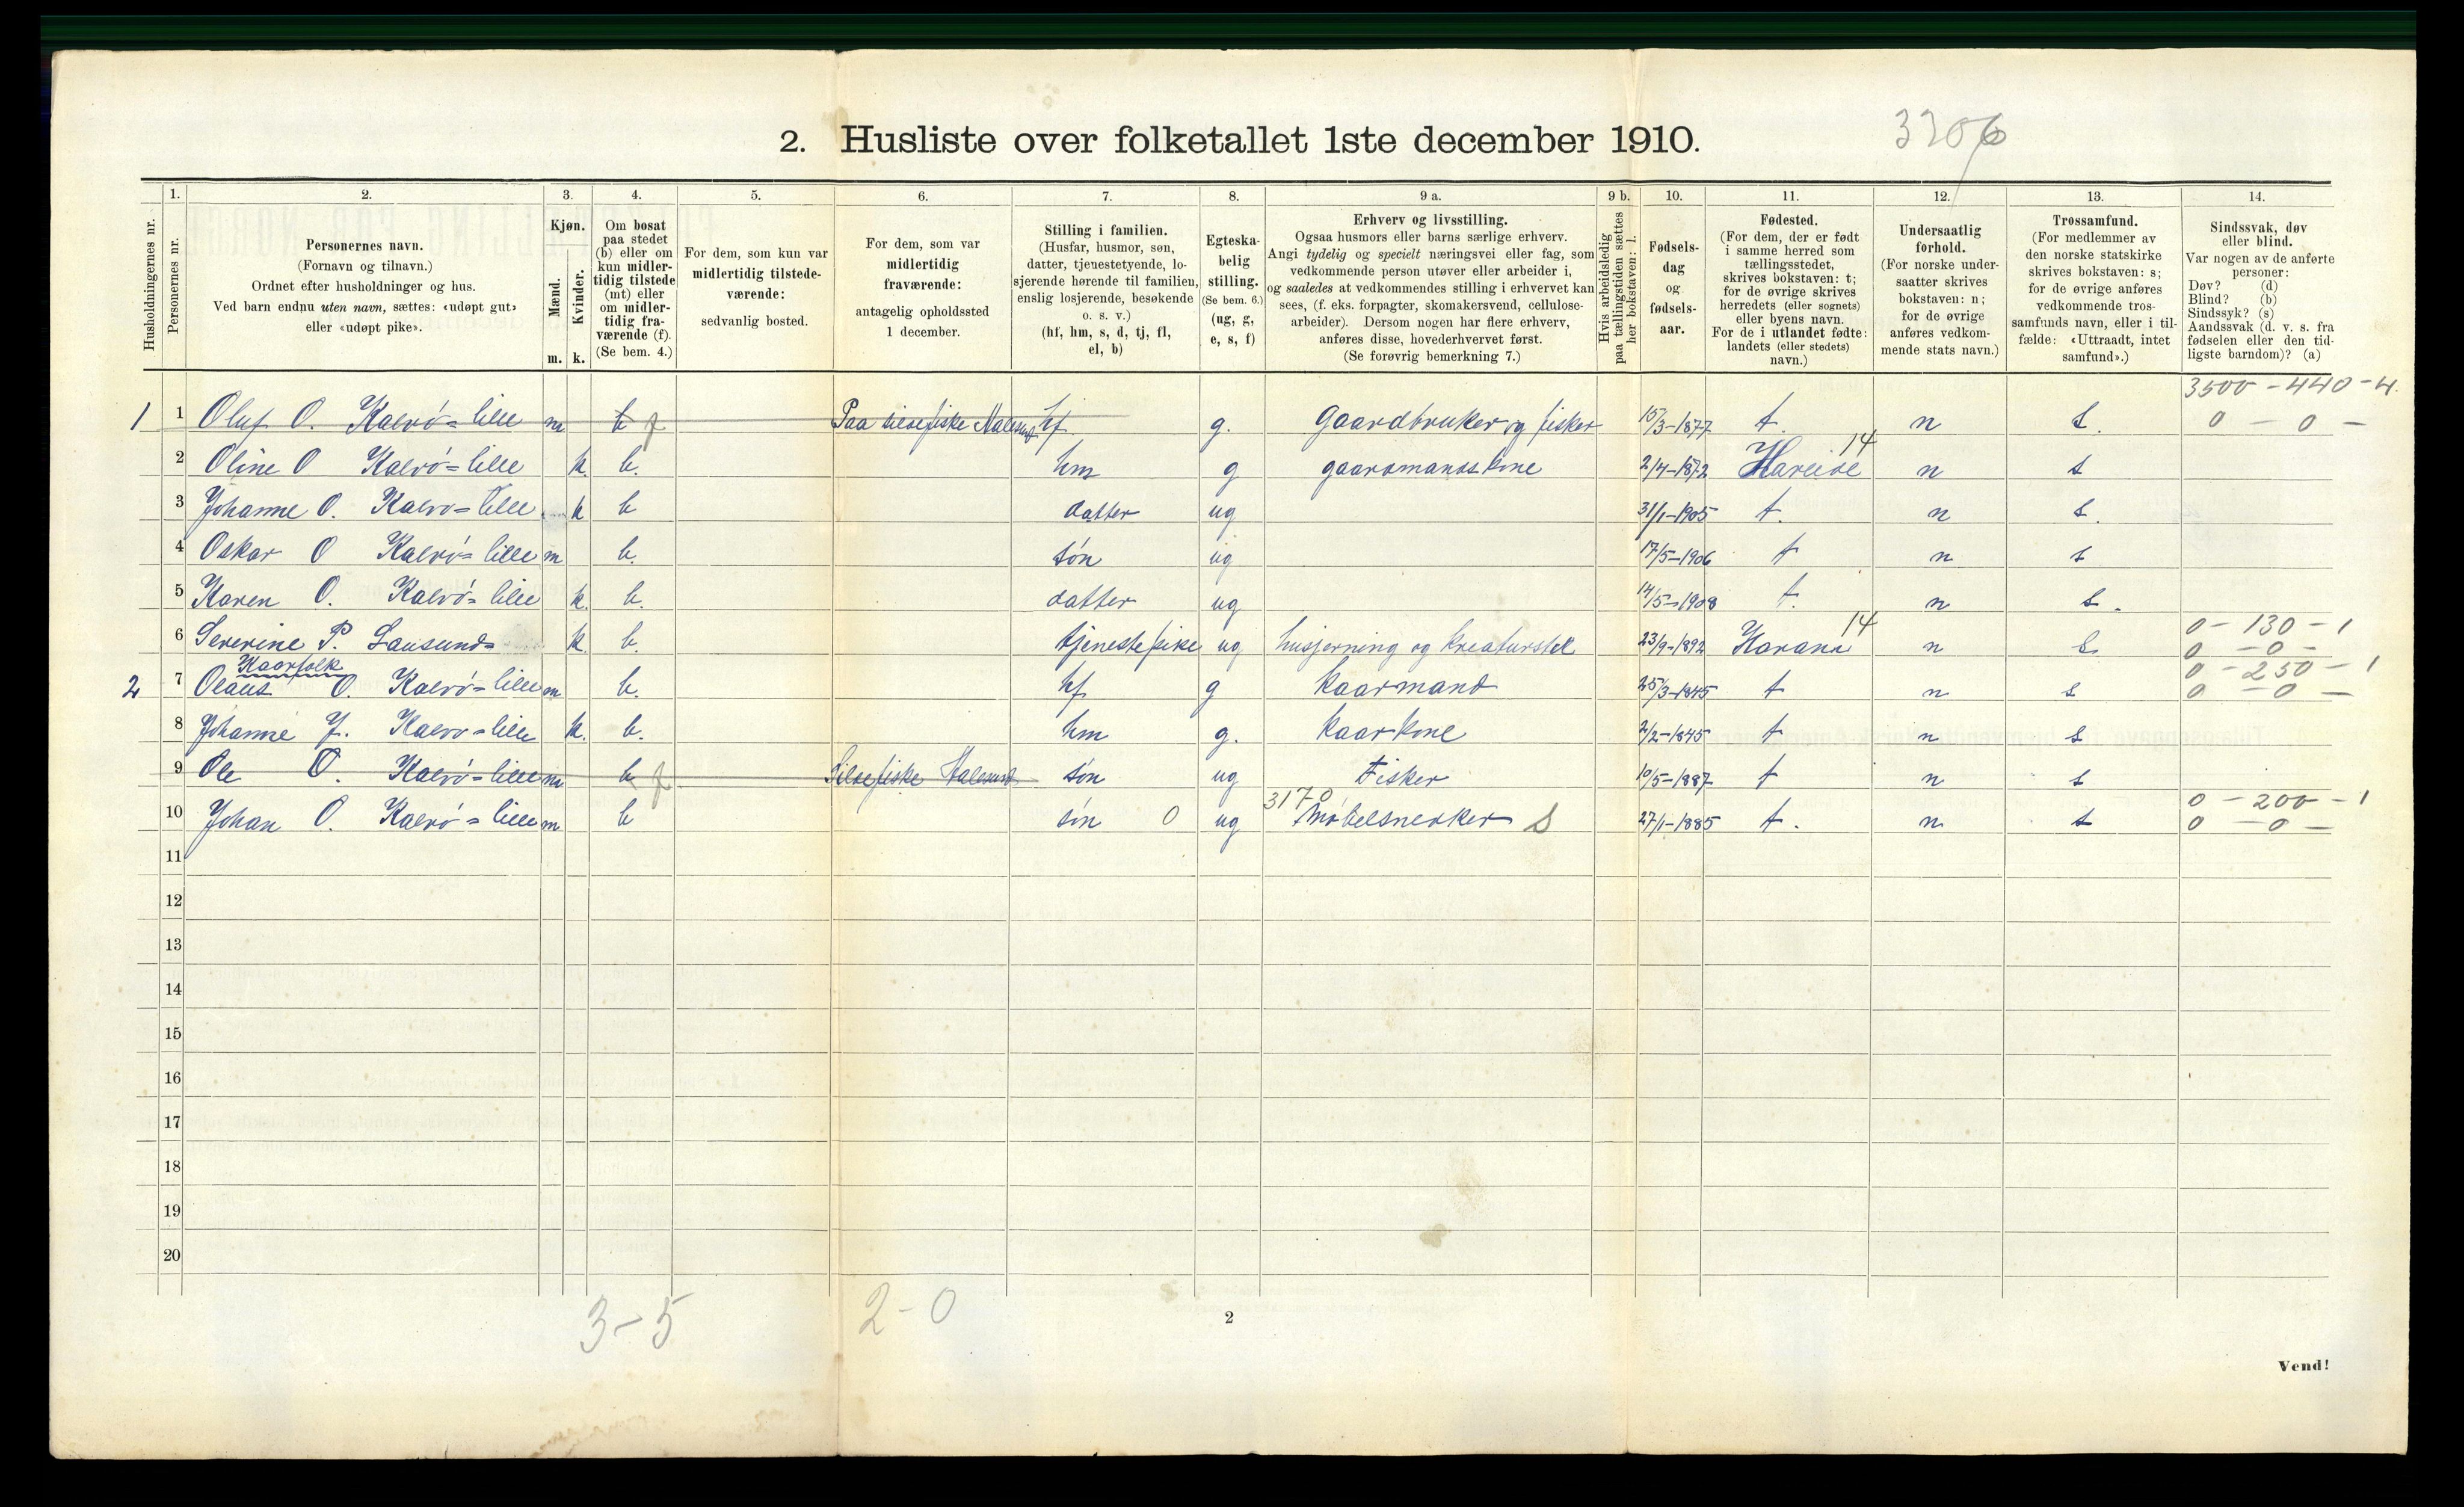 3206
2. Husliste over folketallet 1ste december 1910.
Husholdningernes nr.
1. Personernes nr.
2. Personernes navn. (Fornavn og tilnavn.) Ordnet efter husholdninger og hus. Ved barn endnu uten navn, sættes: «udøpt gut» eller «udøpt pike».
3. Kjøn. Mænd. m. Kvinder. k.
4. Om bosat paa stedet (b) eller om kun midlertidig tilstede (mt) eller om midlertidig fraværende (f). (Se bem. 4.)
5. For dem, som kun var midlertidig tilstedeværende: sedvanlig bosted.
6. For dem, som var midlertidig fraværende: antagelig opholdssted 1 december.
7. Stilling i familien. (Husfar, husmor, søn, datter, tjenestetyende, losjerende hørende til familien, enslig losjerende, besøkende o. s. v.) (hf, hm, s, d, tj, fl, el, b)
8. Egteskabelig stilling. (Se bem. 6.) (ug, g, e, s, f)
9 a. Erhverv og livsstilling. Ogsaa husmors eller barns særlige erhverv. Angi tydelig og specielt næringsvei eller fag, som vedkommende person utøver eller arbeider i, og saaledes at vedkommendes stilling i erhvervet kan sees, (f. eks. forpagter, skomakersvend, cellulosearbeider). Dersom nogen har flere erhverv, anføres disse, hovederhvervet først. (Se forøvrig bemerkning 7.)
9 b. Hvis arbeidsledig paa tællingstiden sættes her bokstaven: l.
10. Fødselsdag og fødselsaar.
11. Fødested. (For dem, der er født i samme herred som tællingsstedet, skrives bokstaven: t; for de øvrige skrives herredets (eller sognets) eller byens navn. For de i utlandet fødte: landets (eller stedets) navn.)
12. Undersaatlig forhold. (For norske undersaatter skrives bokstaven: n; for de øvrige anføres vedkommende stats navn.)
13. Trossamfund. (For medlemmer av den norske statskirke skrives bokstaven: s; for de øvrige anføres vedkommende trossamfunds navn, eller i tilfælde: «Uttraadt, intet samfund».)
14. Sindssvak, døv eller blind. Var nogen av de anførte personer: Døv? (d) Blind? (b) Sindssyk? (s) Aandssvak (d. v. s. fra fødselen eller den tidligste barndom)? (a)
3500 - 440 - 4.
1 1 Oluf O. Kalvø=lille m b f Paa sildefiske Aalesund hf g. gaardbruker og fisker 15/3-1877 t. n s. 0 - 0 -
14
2 Oline O Kalvø=lille k. b. hm g gaardmandskone 2/4-1872 Hareide n s
3 Johanne O. Kalvø=lille k b datter ug 31/1-1905 t. n s.
4 Oskar O Kalvø=lille m b. søn ug 17/5-1906 t n s
5 Karen O. Kalvø=lille k. b. datter ug 14/5-1908 t. n s.
14 0 - 130 - 1
6 Severine P. Lausund k. b. tjenestepike ug husgjerning og kreaturstel 23/9-1892 Haram n s 0 - 0 -
Kaarfolk 0 - 250 - 1
2 7 Olaus O. Kalvø=lille m b. hf g kaarmand 25/3-1845 t n s 0 - 0 -
8 Johanne J. Kalvø=lille k. b. hm g. kaarkone 2/2-1845 t n s
9 Ole O. Kalvø=lille m b f Sildefiske Aalesund søn ug Fisker 10/5-1887 t n s
3170 0 - 200 - 1
10 Johan O. Kalvø=lille m b søn 0 ug Møbelsnedker S 27/1-1885 t. n s 0 - 0 -
11
12
13
14
15
16
17
18
19
20
3-5 2-0
2
Vend!